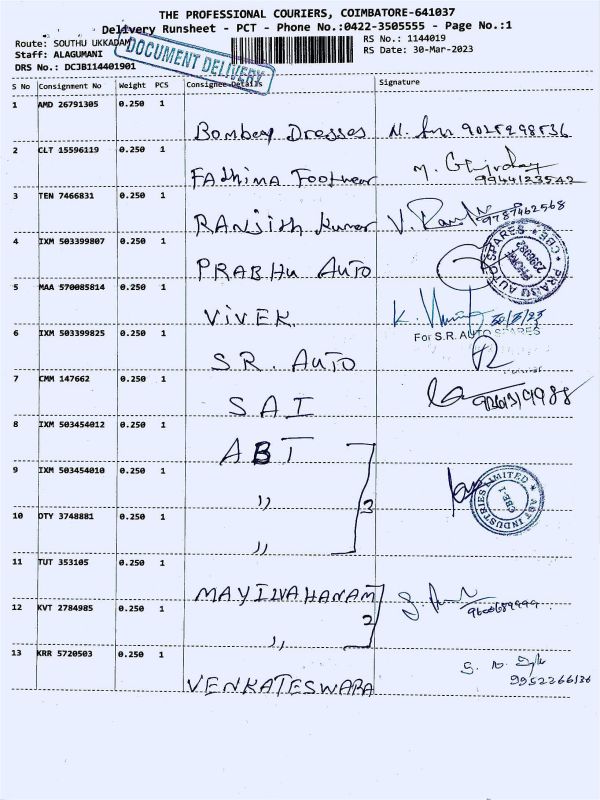 THE PROFESSIONAL COURIERS, COIMBATORE-641037
Delivery Runsheet - PCT - Phone No.:0422-3505555 - Page No.:1
Route: SOUTHU UKKADAM
RS No.: 1144019
Staff: ALAGUMANI
RS Date: 30-Mar-2023
DRS No.: DCJB114401901
DOCUMENT DELIVERY
S No Consignment No Weight PCS Consignee Details Signature
1 AMD 26791305 0.250 1
Bombay Dresses N. 9025298536
2 CLT 15596119 0.250 1
Fathima Footwear M. 9944123542
3 TEN 7466831 0.250 1
RANJith Kumar V. 9787462568
4 IXM 503399807 0.250 1
PRABHU AUTO
PRABU AUTO SPARES * CBE *
PHONE
5 MAA 570085814 0.250 1
VIVEK K. 30/3/23
6 IXM 503399825 0.250 1
For S.R. AUTO SPARES
S.R. AUTO
7 CMM 147662 0.250 1
SAI
8 IXM 503454012 0.250 1
ABT
9 IXM 503454010 0.250 1
,, 3
ABT INDUSTRIES LIMITED
CBE-1
10 DTY 3748881 0.250 1
,,
11 TUT 353105 0.250 1
MAYILVAHANAM
12 KVT 2784985 0.250 1
2
,,
13 KRR 5720503 0.250 1
VENKATESWARA 9952266136